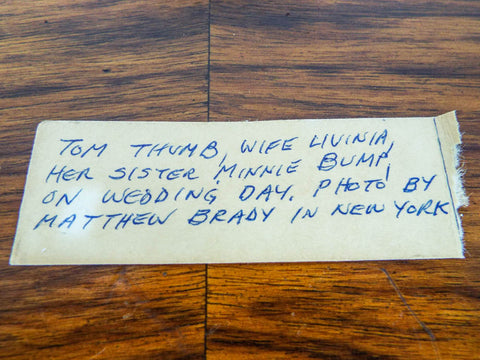 TOM THUMB, WIFE LIVINIA,
HER SISTER MINNIE BUMP,
ON WEDDING DAY. PHOTO BY
MATTHEW BRADY IN NEW YORK